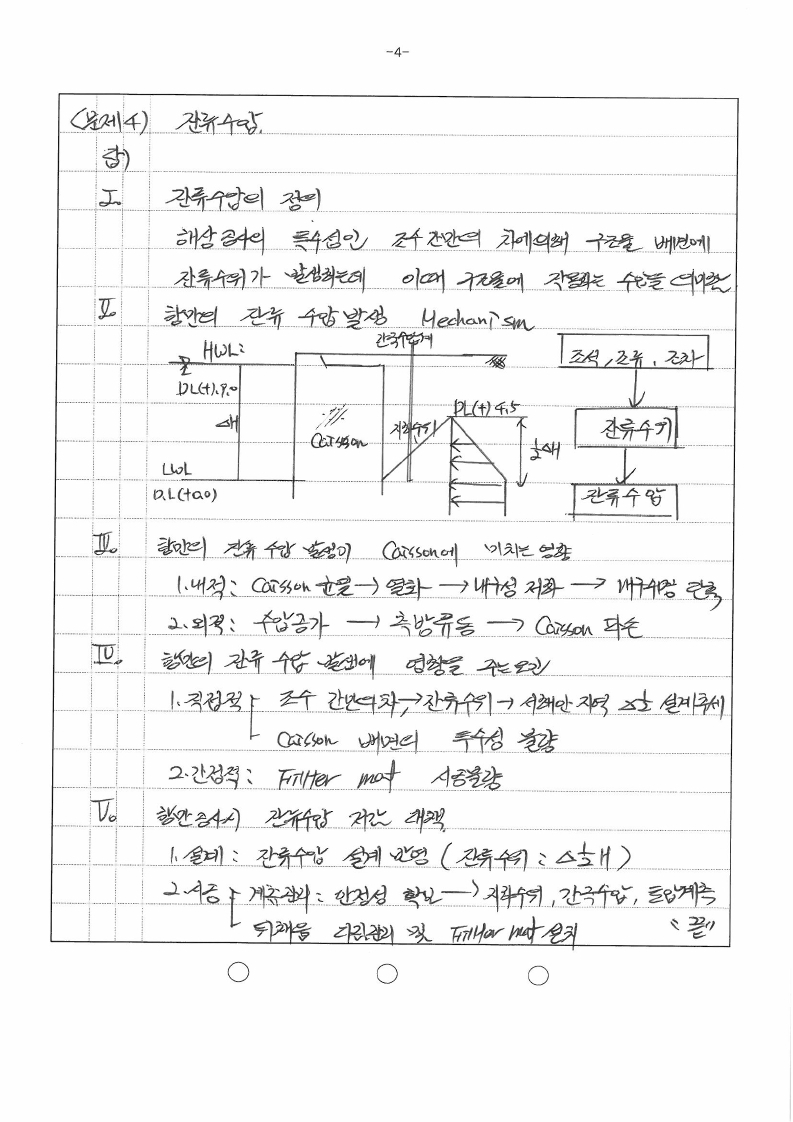 -4-
<문제4) 잔류수압.
답)
I. 잔류수압의 정의
해상공사의 특수성인 조수간만의 차에의해 구조물 배면에
잔류수위가 발생하는데 이때 구조물에 작용하는 수압을 의미함
II. 항만의 잔류 수압 발생 Mechanism
간극수압계
HWL:
조석, 조류, 조차
DL(+).9.0
DL(+) 4.5
ΔH
Caisson
지하수위
½ΔH
잔류수위
LWL
D.L(+0.0)
잔류수압
III. 항만의 잔류 수압 발생이 Caisson에 미치는 영향
1.내적: Caisson 균열→ 열화 → 내구성 저하 → 내구수명 단축
2.외적: 수압증가 → 측방류동 → Caisson 파손
IV. 항만의 잔류 수압 발생에 영향을 주는요인
1.직접적 조수 간만의차→잔류수위→ 서해안 지역 Δ½ 설계추세
Caisson 배면의 투수성 불량
2.간접적: Fillter mat 시공불량
V. 항만공사시 잔류수압 저감 대책
1.설계: 잔류수압 설계 반영 ( 잔류수위 : Δ½H )
2.시공 계측관리: 안정성 확보→ 지하수위, 간극수압, 토압계측
뒤채움 다짐관리 및 Fillter mat 설치 "끝"